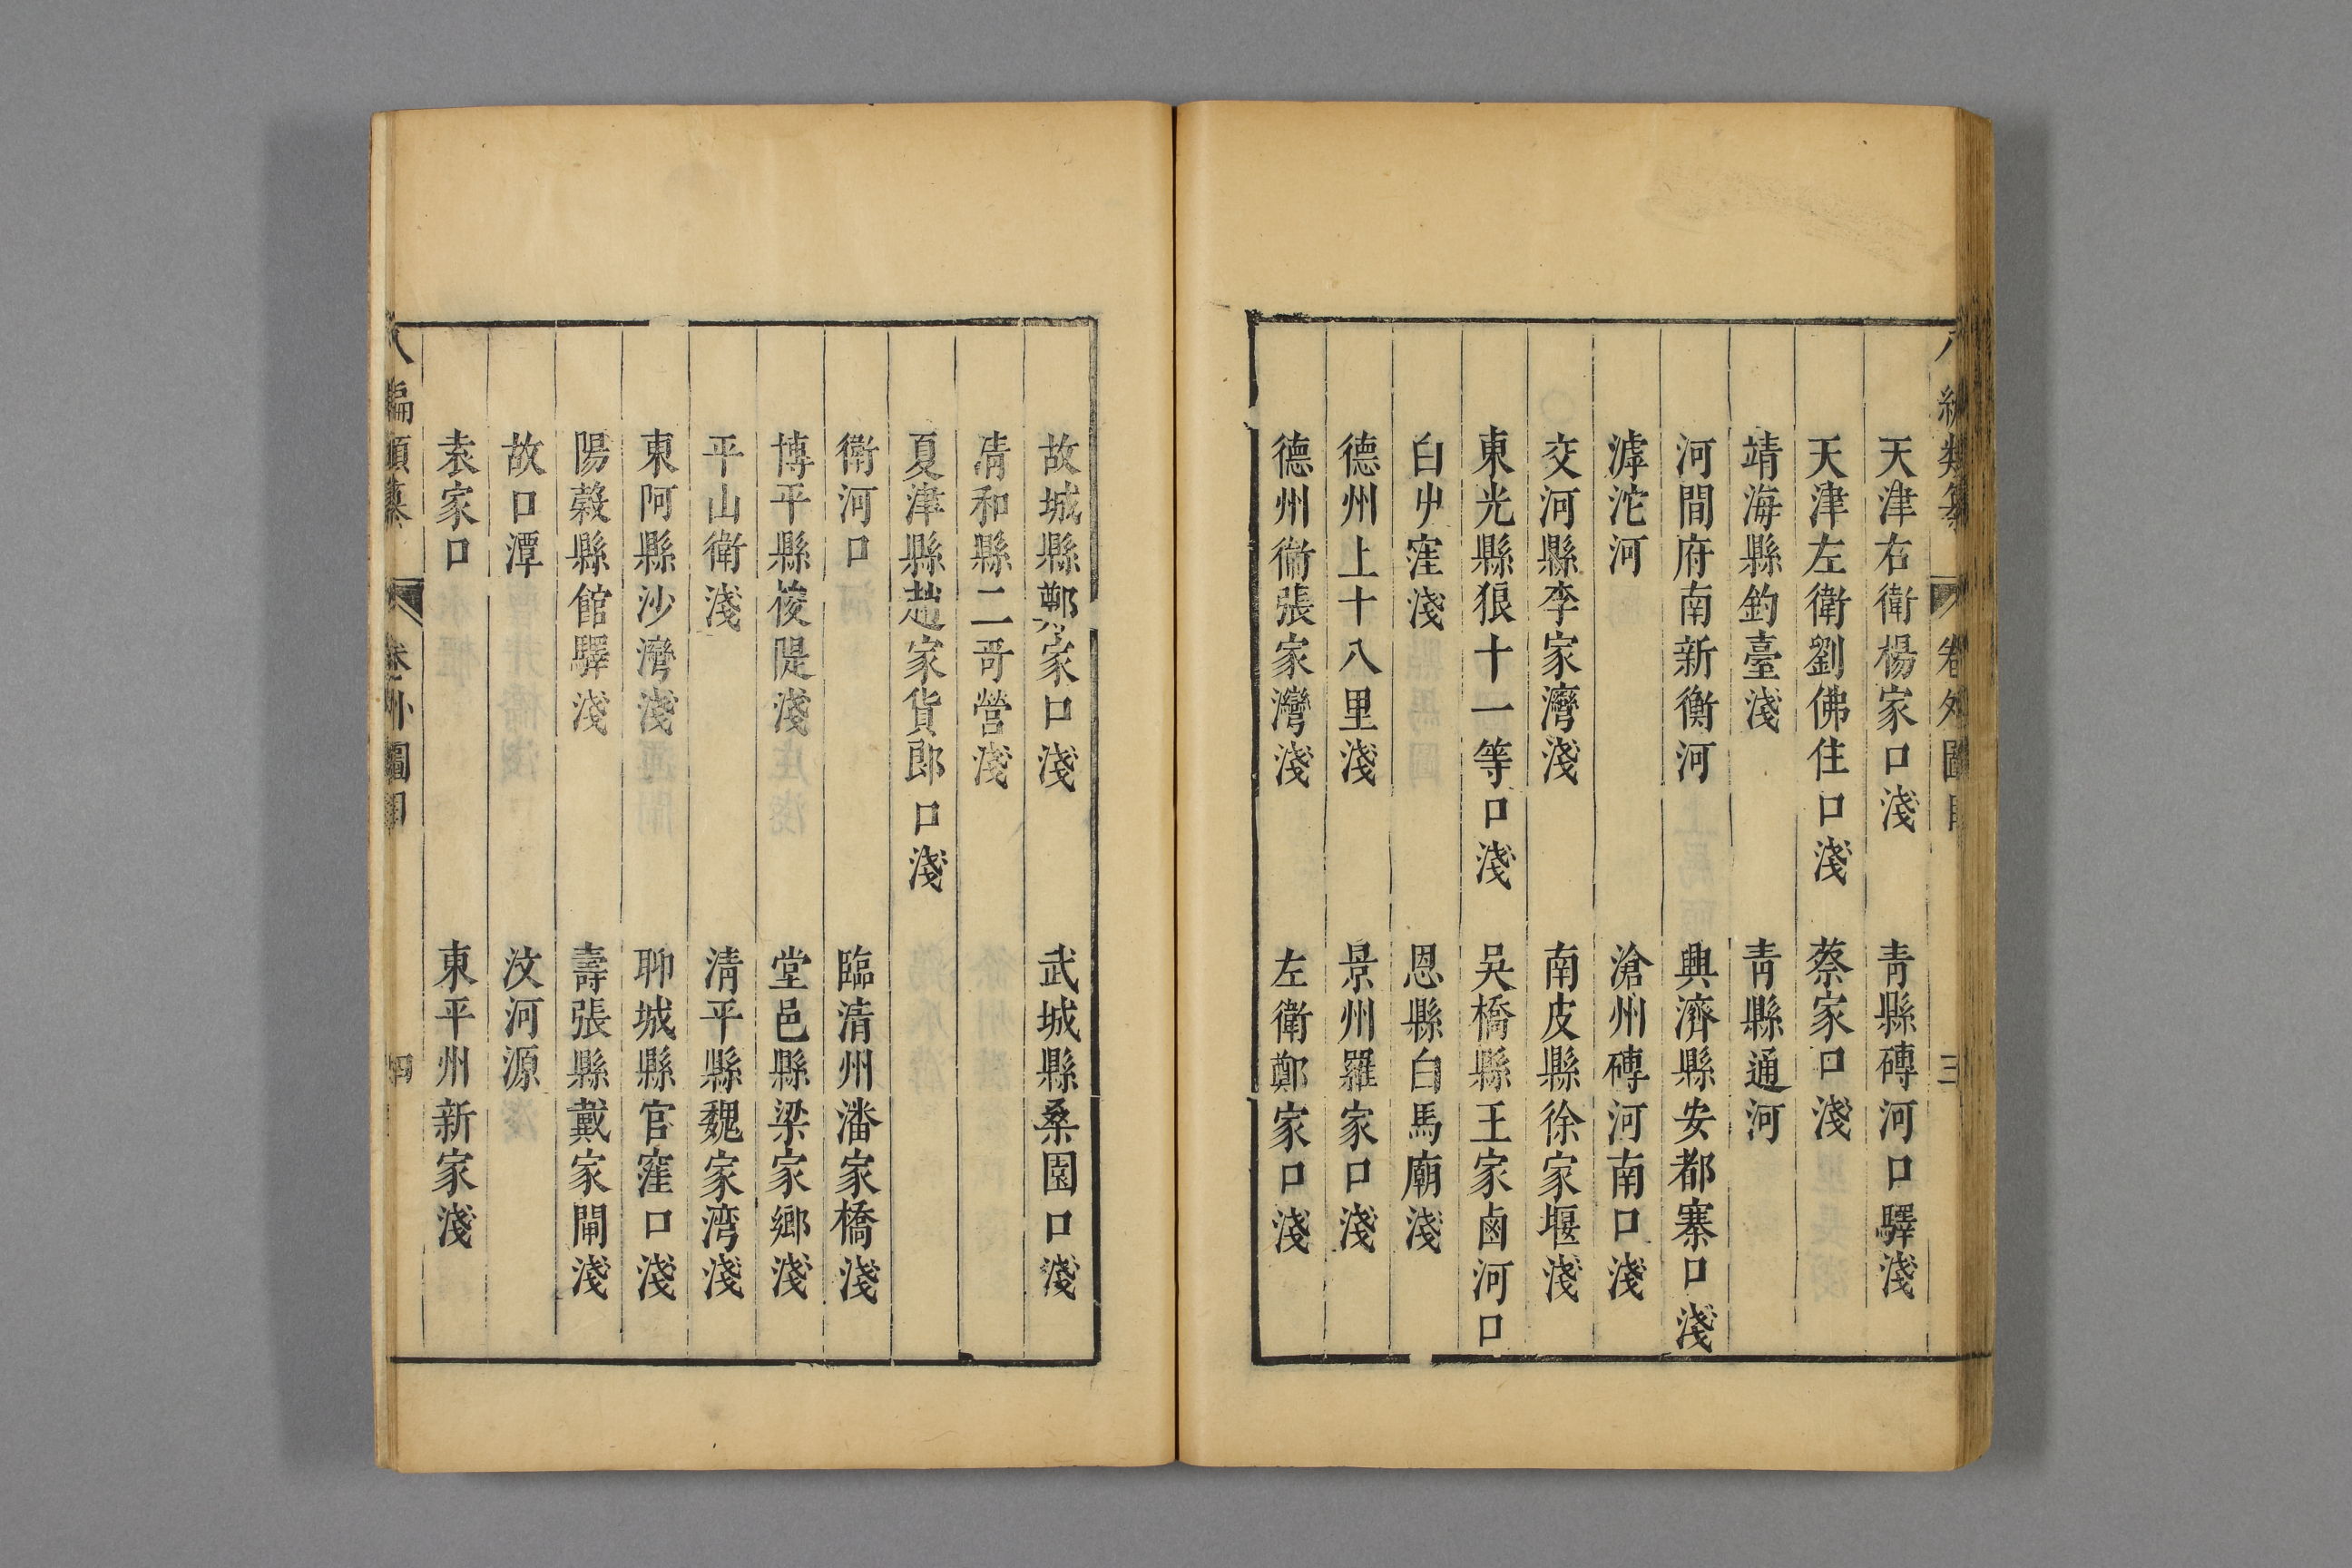 天津右衛楊家口淺　青縣磚河口驛淺
天津左衛劉佛住口淺　蔡家口淺
靖海縣釣臺淺　青縣通河
河間府南新衡河　興濟縣安都寨口淺
滹沱河　滄州磚河南口淺
交河縣李家灣淺　南皮縣徐家堰淺
東光縣狼十一等口淺　吳橋縣王家鹵河口
白屮窪淺　恩縣白馬廟淺
德州上十八里淺　景州羅家口淺
德州衛張家灣淺　左衛鄭家口淺
故城縣鄭家口淺　武城縣桑園口淺
清和縣二哥營淺
夏津縣趙家貨郎口淺
衛河口　臨清州潘家橋淺
博平縣稜隄淺　堂邑縣梁家鄉淺
平山衛淺　清平縣魏家湾淺
東阿縣沙灣淺　聊城縣官窪口淺
陽榖縣館驛淺　壽張縣戴家閘淺
故口潭　汶河源
袁家口　東平州新家淺
八編類纂　卷外圖目　四